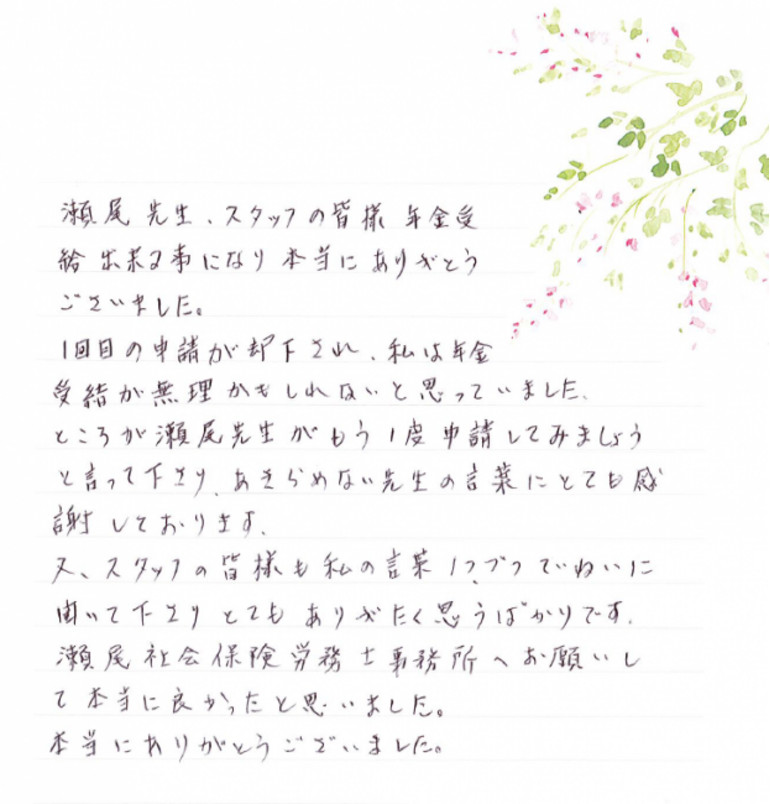 瀬尾先生、スタッフの皆様 年金受
給出来る事になり本当にありがとう
ございました。
1回目の申請が却下され、私は年金
受給が無理かもしれないと思っていました、
ところが瀬尾先生がもう1度申請してみましょう
と言って下さり、あきらめない先生の言葉にとても感
謝しております。
又、スタッフの皆様も私の言葉1つ、1つていねいに
聞いて下さりとてもありがたく思うばかりです。
瀬尾社会保険労務士事務所へお願いし
て本当に良かったと思いました。
本当にありがとうございました。